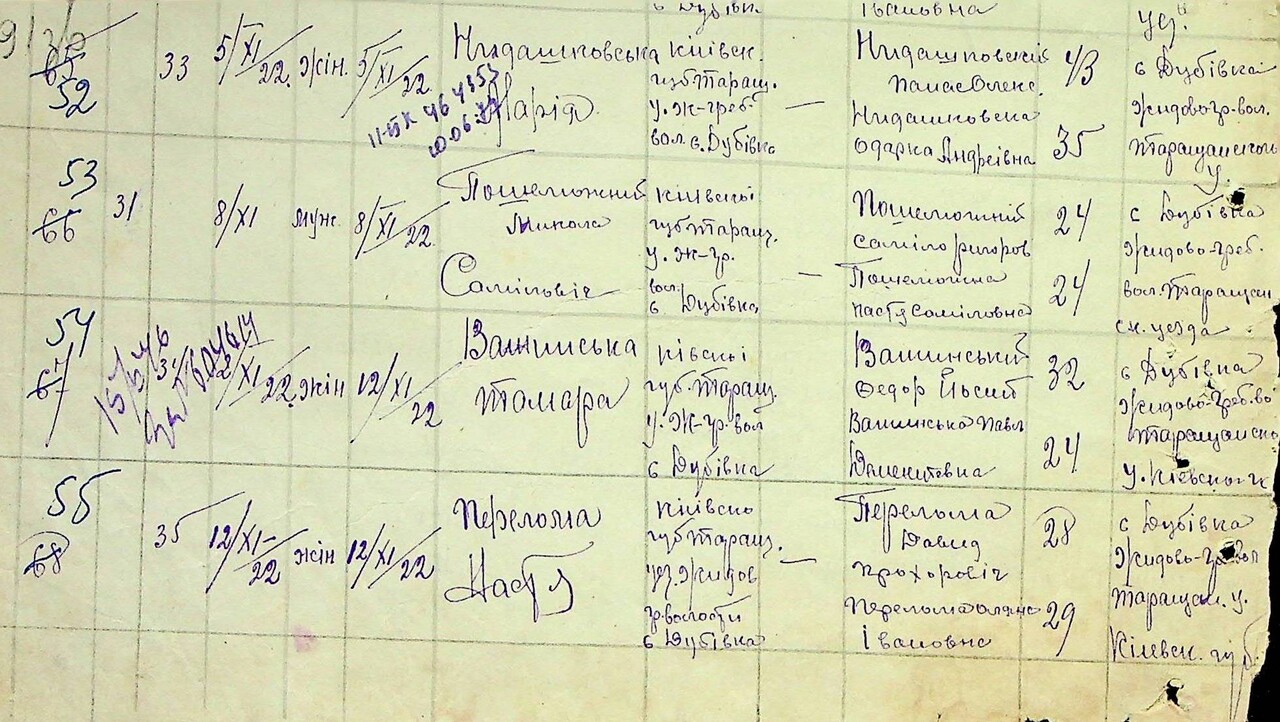 с Дубівк. Івановна уѣ.
65
52
33 5/XI 22. жін. 5/XI 22
Нидашковська
Марія
Київск.
губ. Таращ.
у. Ж-греб.
вол. с. Дубівка
—
Нидашковский
Панас Олекс.
Нидашковска
Одарка Андреівна
43
35
с Дубівка
Жидово-гр. вол.
Таращанского
у.
53
66
31 8/XI муж. 8/XI 22
Пошелюжний
Микола
Саміловіч
Київскі
губ. Таращ.
у. Ж-гр.
вол.
с Дубівка
—
Пошелюжний
Саміло Григоров
Пошелюжна
Наст Саміловна
24
24
с Дубівка
Жидово-греб.
вол. Таращан
ск. уезда
54
67
22. жін 12/XI 22
Вашинська
Тамара
Ківскі
губ. Таращ.
у. Ж-гр. вол
с Дубівка
Вашинський
Федор Йосип
Вашинська Павл
32
24
с Дубівка
Жидово-греб. во
Таращанско
у. Кіевско
55
68
35 12/XI 22 жін 12/XI 22
Перелома
Настя
Київско
губ. Таращ.
уез. Жидов
гр. волости
с Дубівка
—
Перелома
Давид
Прохоровіч
Перелома
Івановна
28
29
с Дубівка
Жидово-гр. вол
Таращан. у.
Кіевск. губ.